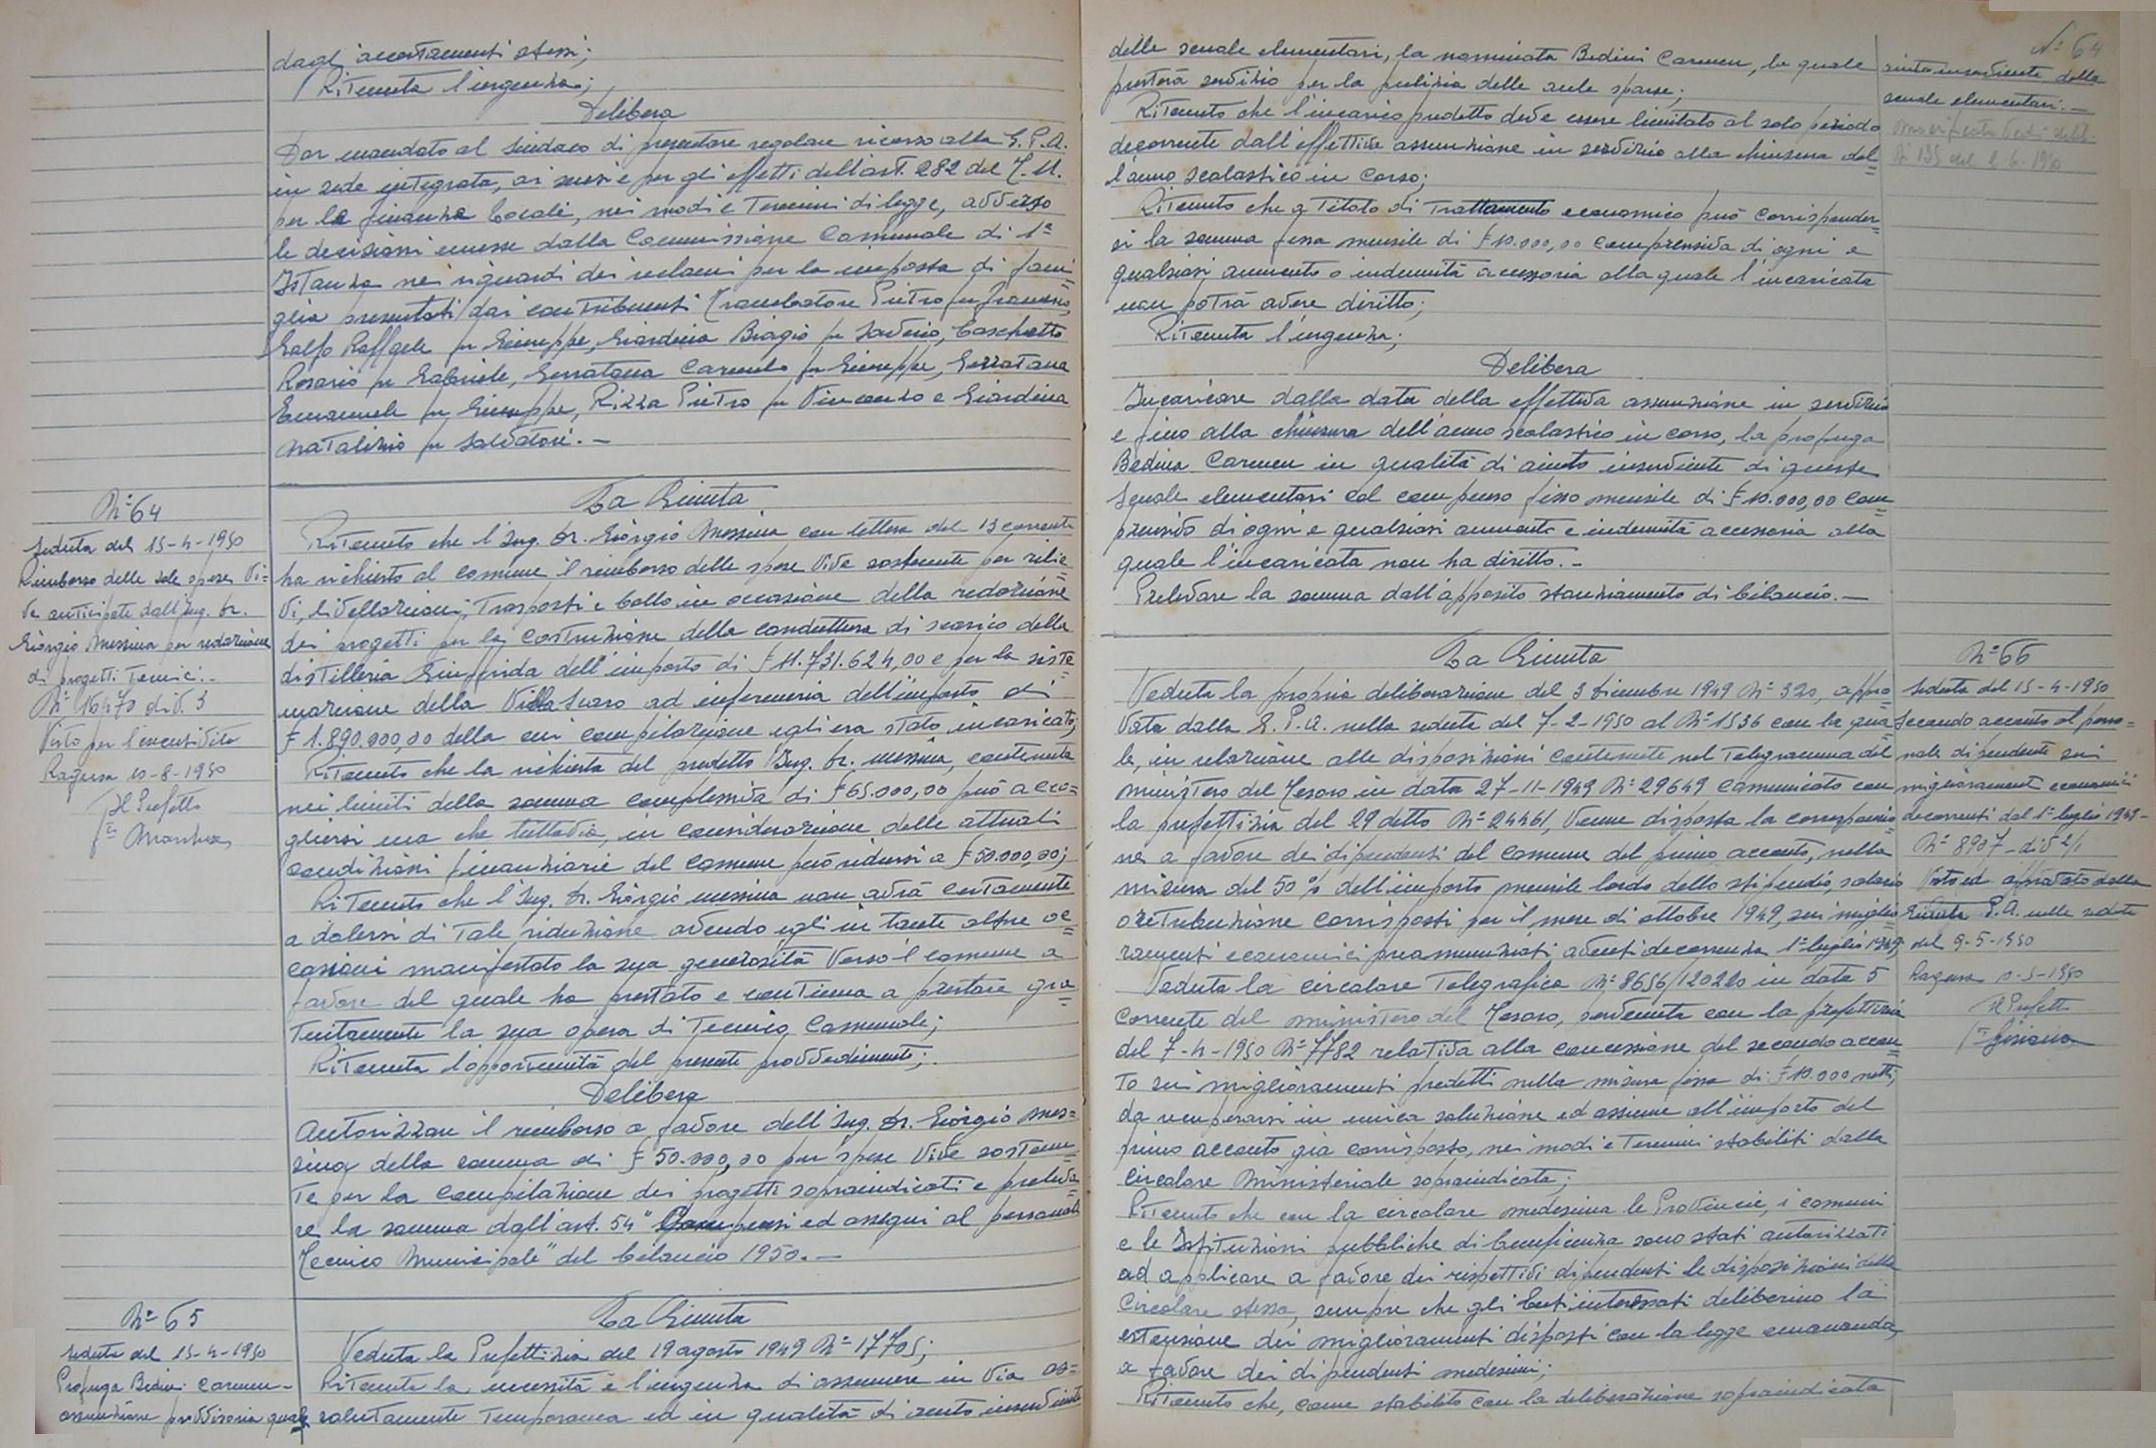 dagl'accertamenti stessi;
Ritenuta l'urgenza;
Delibera
Dar mandato al Sindaco di presentare regolare ricorso alla G.P.A.
in sede integrata, ai sensi e per gli effetti dell'art. 282 del T.U.
per la finanza locale, nei modi e termini di legge, avverso
le decisioni emesse dalla Commissione Comunale di 1ª
Istanza nei riguardi dei reclami per la imposta di fami=
glia presentati dai contribuenti Pietro fu Francesco,
Galfo Raffaele fu Giuseppe, Giardina Biagio fu Saverio, Caschetto
Rosario fu Gabriele, Serratana Carmelo fu Giuseppe, Serratana
Emanuele fu Giuseppe, Rizza Pietro fu Vincenzo e Giardina
Natalizio fu Salvatore.-
Nº 64
Seduta del 15-4-1950
Rimborso delle sole spese vi=
ve anticipate dall'Ing. Dr.
Giorgio Messina per redazione
di progetti tecnici.-
Nº 16470 div. 3
Visto per l'esecutività
Ragusa 10-8-1950
Il Prefetto
La Giunta
Ritenuto che l'Ing. Dr. Giorgio Messina con lettera del 13 corrente
ha richiesto al comune il rimborso delle spese vive sostenute per rilie=
vi, livellazioni, trasporti e bollo in occasione della redazione
dei progetti per la costruzione della conduttura di scarico della
distilleria dell'importo di £ 11.731.624,00 e per la siste=
mazione della Villa Scaro ad infermeria dell'importo di
£ 1.890.000,00 della cui compilazione egli era stato incaricato;
Ritenuto che la richiesta del predetto Ing. Dr. Messina, contenuta
nei limiti della somma complessiva di £ 65.000,00 può acco=
gliersi ma che tuttavia, in considerazione delle attuali
condizioni finanziarie del comune può ridursi a £ 50.000,00;
Ritenuto che l'Ing. Dr. Giorgio Messina non avrà certamente
a dolersi di tale riduzione avendo egli in tante altre oc=
casioni manifestato la sua generosità verso il comune a
favore del quale ha prestato e continua a prestare gra=
tuitamente la sua opera di Tecnico Comunale;
Ritenuta l'opportunità del presente provvedimento;
Delibera
Autorizzare il rimborso a favore dell'Ing. Dr. Giorgio Mes=
sina della somma di £ 50.000,00 per spese vive sostenu=
te per la compilazione dei progetti sopraindicati e preleva=
re la somma dall'art. 54 "Compensi ed assegni al personale
Tecnico Municipale" del bilancio 1950.-
Nº 65
Seduta del 15-4-1950
Profuga Bedini Carmen-
assunzione provvisoria quale
La Giunta
Veduta la Prefettizia del 19 agosto 1949 Nº 17705;
Ritenuta la necessità e l'urgenza di assumere in via as=
solutamente temporanea ed in qualità di aiuto inserviente
Nº 64
delle scuole elementari, la nominata Bedini Carmen, la quale
presterà servizio per la pulizia delle aule sparse;
Ritenuto che l'incarico predetto deve essere limitato al solo periodo
decorrente dall'effettiva assunzione in servizio alla chiusura del=
l'anno scolastico in corso;
Ritenuto che a titolo di trattamento economico può corrisponder=
si la somma fissa mensile di £ 10.000,00 comprensiva di ogni e
qualsiasi aumento o indennità accessoria alla quale l'incaricata
non potrà avere diritto;
Ritenuta l'urgenza;
Delibera
Incaricare dalla data della effettiva assunzione in servizio
e fino alla chiusura dell'anno scolastico in corso, la profuga
Bedini Carmen in qualità di aiuto inserviente di queste
Scuole elementari col compenso fisso mensile di £ 10.000,00 com=
prensivo di ogni e qualsiasi aumento e indennità accessoria alla
quale l'incaricata non ha diritto.-
Prelevare la somma dall'apposito stanziamento di bilancio.-
aiuto inserviente delle
scuole elementari.-
vedi delib.
Nº 135 del 2-6-1950
La Giunta
Veduta la propria deliberazione del 3 dicembre 1949 Nº 320, appro=
vata dalla G.P.A. nella seduta del 7-2-1950 al Nº 1536 con la qua=
le, in relazione alle disposizioni contenute nel telegramma del
Ministero del Tesoro in data 27-11-1949 Nº 29649 comunicato con
la prefettizia del 29 detto Nº 24461, venne disposta la correspsio=
ne a favore dei dipendenti del comune del primo acconto, nella
misura del 50% dell'importo mensile lordo dello stipendio, salario
o retribuzione corrisposti per il mese di ottobre 1949, sui miglio=
ramenti economici preannunziati aventi decorrenza 1º luglio 1949;
Veduta la circolare telegrafica Nº 8656/120220 in data 5
corrente del Ministero del Tesoro, pervenuta con la prefettizia
del 7-4-1950 Nº 7782 relativa alla concessione del secondo accon=
to sui miglioramenti predetti nella misura fissa di £ 10.000 netti,
da recuperarsi in unica soluzione ed assieme all'importo del
primo acconto già corrisposto, nei modi e termini stabiliti dalla
circolare Ministeriale sopraindicata;
Ritenuto che con la circolare medesima le Provincie, i comuni
e le Istituzioni pubbliche di beneficenza sono stati autorizzati
ad applicare a favore dei rispettivi dipendenti le disposizioni della
Circolare stessa, sempre che gli Enti interessati deliberino la
estensione dei miglioramenti disposti con la legge emananda,
a favore dei dipendenti medesimi;
Ritenuto che, come stabilito con la deliberazione sopraindicata
Nº 66
Seduta del 15-4-1950
Secondo acconto al perso=
nale dipendente sui
miglioramenti economici
decorrenti dal 1º luglio 1949-
Nº 8907 - div 2/1
Visto ed approvato dalla
Giunta P.A. nella seduta
del 9-5-1950
Ragusa 10-5-1950
Il Prefetto